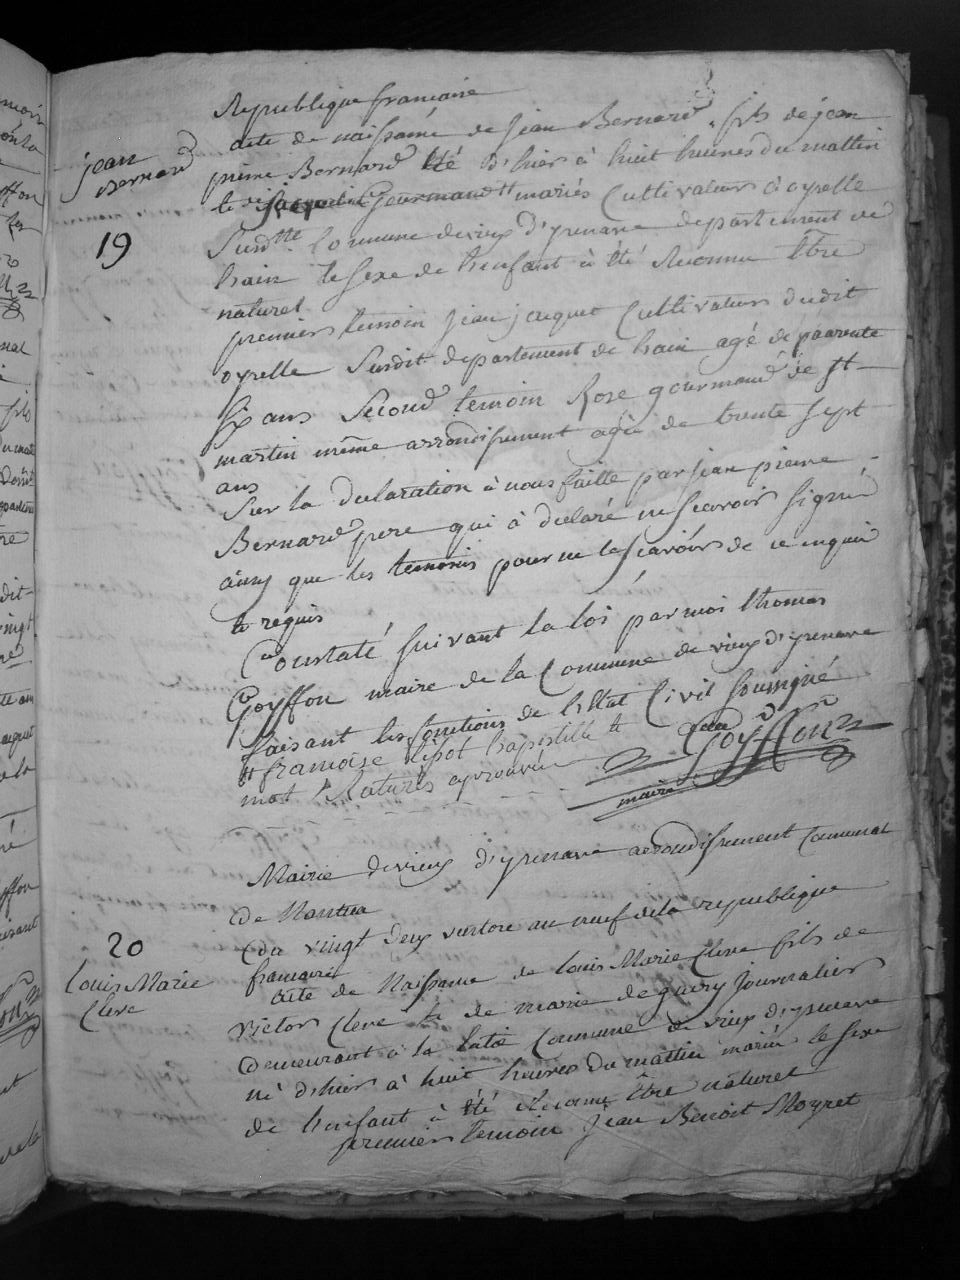 Republique francaise
jean
Bernard
19
acte de naissance de Jean Bernard fils de jean
pierre Bernard né d'hier à huit heures du mattin
et de jacqueline Gourmand tt mariés Cultivateurs à oyselle
Surditte Commune de vieux d'yzenave departement de
hain le sexe de l'enfant à été Reconnu Etre
naturel
premiers temoin jean jacquet Cultivateurs dudit
oyselle Surdit departement de hain agé de quarente
six ans Second temoin Rose gourmand de st
martin même arrondissement agée de trente sept
ans
Sur la declaration à nous faitte par jean pierre
Bernard pere qui à declaré ne scavoir signé
ainsy que les temoins pour ne le scavoir de ce enquis
et requis
Constaté suivant la loi par moi thomas
Goyffon maire de la Commune de vieux d'yzenave
faisant les fonctions de l'Etat Civil Soussigné
tt francoise et
mot Raturés aprouvée
Goyffon
maire
Mairie de vieux d'yzenave arrondissement Communal
de Nantua
20
Louis Marie
Cleve
du vingt deux vantose an neuf de la republique
francaise
acte de Naissance de Louis Marie Cleve fils de
victor Cleve et de marie deguery Journalier
demeurant à la Commune de vieux d'yzenave
né d'hier à huit heures du mattin mariés le sexe
de l'enfant à été Reconnu Etre naturel
premiers temoin jean Benoit Moyret